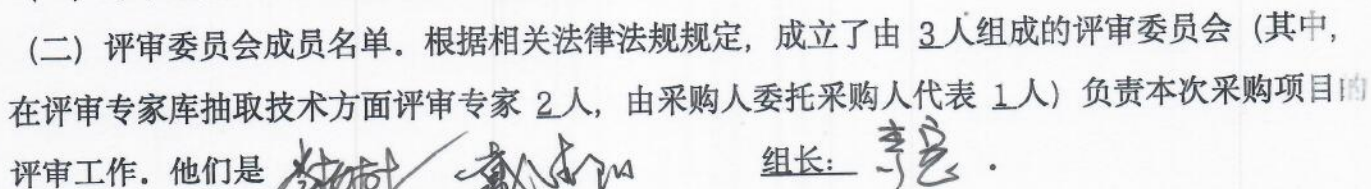 (二) 评审委员会成员名单. 根据相关法律法规规定, 成立了由 3人组成的评审委员会 (其中,
在评审专家库抽取技术方面评审专家 2人, 由采购人委托采购人代表 1人) 负责本次采购项目的
评审工作. 他们是 组长: .